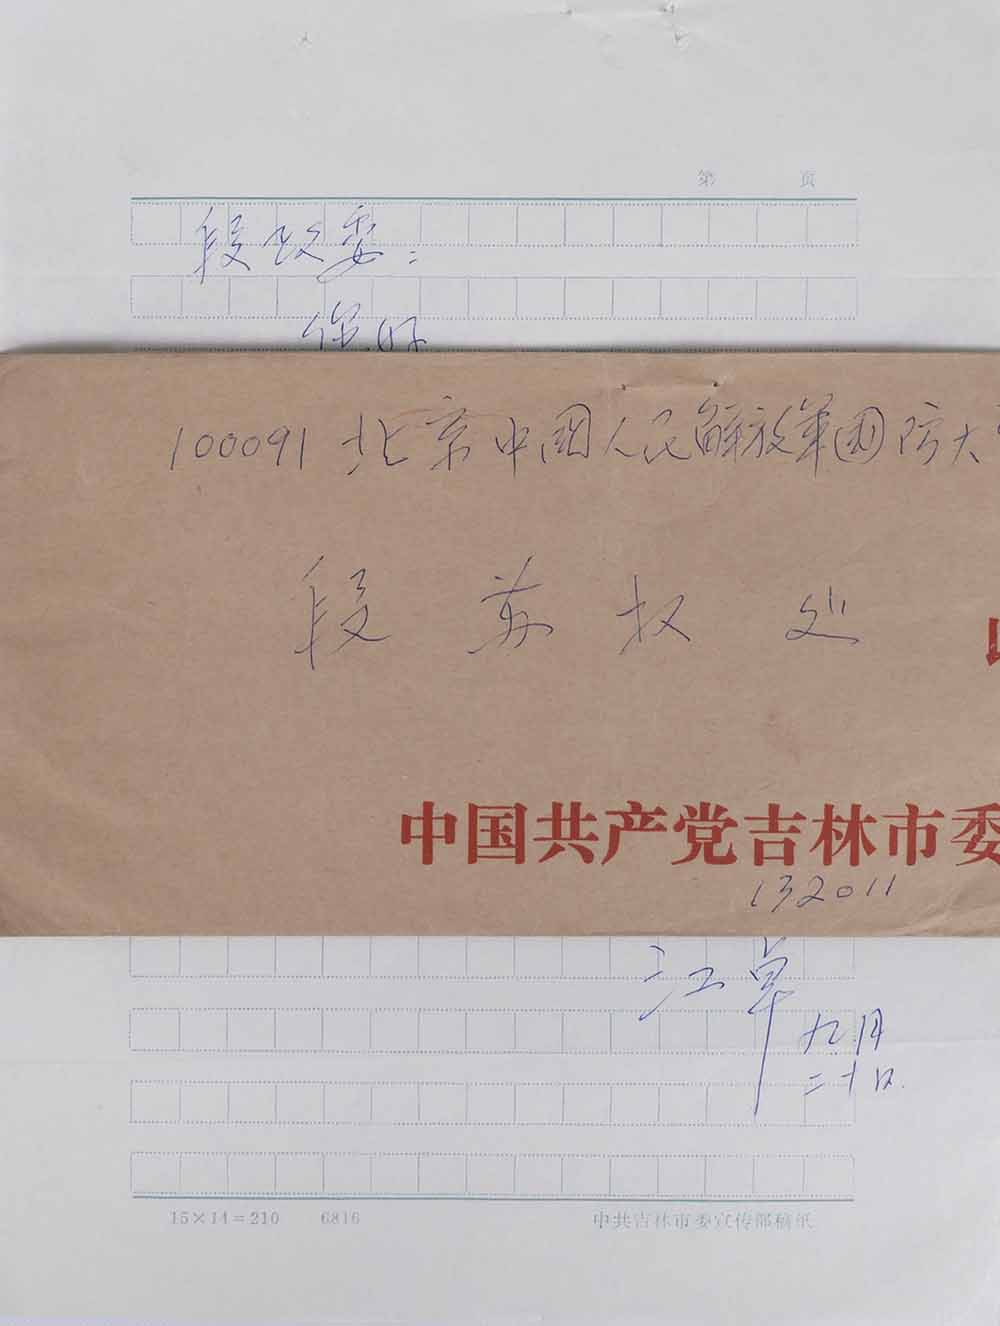 第 页
段政委：
您好
100091 北京中国人民解放军国防大
段苏权处
中国共产党吉林市委
132011
江卓
九月
二十日.
15×14=210 6816
中共吉林市委宣传部稿纸